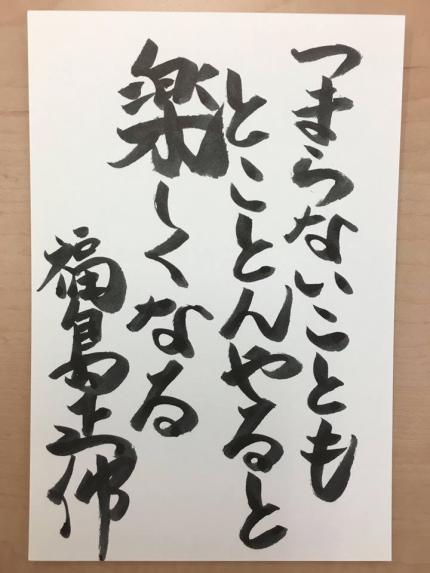 つまらないことも
とことんやると
楽しくなる
福島正伸